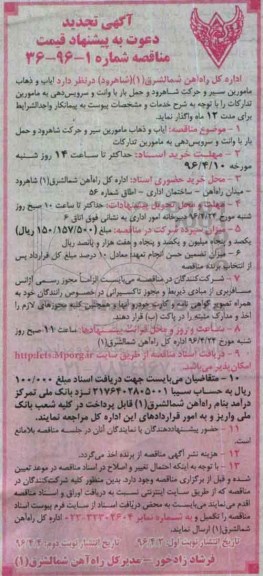 آگهی تجدید
دعوت به پیشنهاد قیمت
مناقصه شماره ۱-۹۶-۳۶
اداره کل راه‌آهن شمالشرق(۱)(شاهرود) درنظر دارد ایاب و ذهاب
مامورین سیر و حرکت شاهرود و حمل بار با وانت و سرویس‌دهی به مامورین
تدارکات را با توجه به شرح خدمات و مشخصات پیوست به پیمانکار واجدالشرایط
برای مدت ۱۲ ماه واگذار نماید.
۱- موضوع مناقصه: ایاب و ذهاب مامورین سیر و حرکت شاهرود و حمل
بار با وانت و سرویس‌دهی به مامورین تدارکات
۲- مهلت خرید اسناد: حداکثر تا ساعت ۱۴ روز شنبه
مورخه ۹۶/۴/۱۰
۳- محل خرید حضوری اسناد: اداره کل راه‌آهن شمالشرق(۱) شاهرود
- میدان راه‌آهن - ساختمان اداری - اطاق شماره ۵۶
۴- مهلت و محل تحویل پیشنهادات: حداکثر تا ساعت ۱۰ صبح روز
شنبه مورخ ۹۶/۴/۲۴ دبیرخانه امور اداری به نشانی فوق اتاق ۶
۵- میزان سپرده شرکت در مناقصه: مبلغ (۱۵۰/۱۵۷/۵۰۰ ریال)
یکصد و پنجاه میلیون و یکصد و پنجاه و هفت هزار و پانصد ریال
۶- میزان تضمین حسن انجام تعهد: معادل ۱۰ درصد مبلغ کل قرارداد پس
از انتخاب برنده مناقصه
۷- شرکت‌کنندگان در مناقصه می‌بایست الزاماً مجوز رسمی آژانس
مسافربری از مبادی ذیربط و مجوز تاکسیرانی درخصوص رانندگان خود به
همراه تصویر گواهی نامه و کارت خودرو آنها و همچنین کلیه مجوزهای لازم را
اخذ و مدارک مثبته را در پاکت (ب) قرار دهند.
۸- ساعت و روز و محل قرائت پیشنهادها: ساعت ۱۱ صبح روز
شنبه مورخ ۹۶/۴/۲۴ اداره کل راه‌آهن شمالشرق(۱)
۹- دریافت اسناد مناقصه از طریق سایت
امکان پذیر می‌باشد.
۱۰- متقاضیان می‌بایست جهت دریافت اسناد مبلغ ۱۰۰/۰۰۰
ریال به حساب سیبا ۲۱۷۶۴۰۲۸۰۵۰۰۱ نزد بانک ملی تمرکز
درآمد بنام راه‌آهن شمالشرق(۱) قابل پرداخت در کلیه شعب بانک
ملی واریز و به امور قراردادهای این اداره کل مراجعه نمایند.
۱۱- حضور پیشنهاددهندگان یا نمایندگان آنان در جلسه مناقصه بلامانع
است.
۱۲- هزینه نشر آگهی مناقصه از برنده اخذ می‌گردد.
۱۳- با توجه به اینکه احتمال تغییر و اصلاح در اسناد مناقصه در موعد تعیین
شده و قبل از برگزاری مناقصه وجود دارد. بدین منظور کلیه شرکت‌کنندگان در
مناقصه که از طریق سایت اینترنتی نسبت به دریافت اوراق و اسناد مناقصه
اقدام می‌نمایند می‌بایست به محض دریافت اسناد از سایت فرم پیوست اسناد
مناقصه را تکمیل و به شماره نمابر اداره کل راه‌آهن
شمالشرق(۱) ارسال نمایند.
تاریخ انتشار نوبت اول ۹۶.۴.۳ تاریخ انتشار نوبت دوم ۹۶.۴.۴
فرشاد رادجور - مدیرکل راه‌آهن شمالشرق(۱)